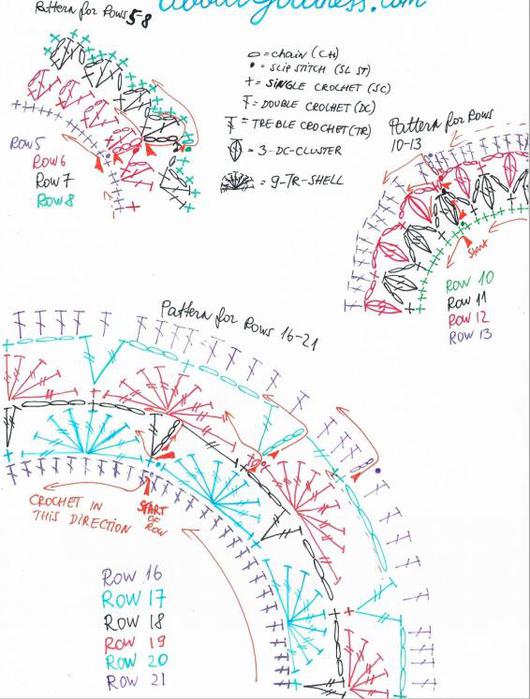 Pattern for Rows 5-8
Row5
Row6
Row7
Row8
= chain (CH)
= SLIP STITCH (SL ST)
+ = SINGLE CROCHET (SC)
= DOUBLE CROCHET (DC)
= TREBLE CROCHET (TR)
= 3-DC-CLUSTER
= 9-TR-SHELL
Pattern for Rows
10-13
Start
ROW 10
ROW 11
ROW 12
ROW 13
Pattern for Rows 16-21
CROCHET IN
THIS DIRECTION
START
OF
ROW
ROW 16
ROW 17
ROW 18
ROW 19
ROW 20
ROW 21